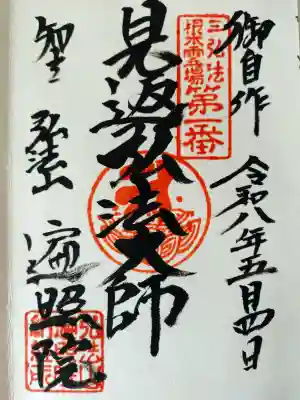 御自作
令和八年五月四日
三弘法
根本霊場
第一番
見返弘法大師
弘法山
遍照院